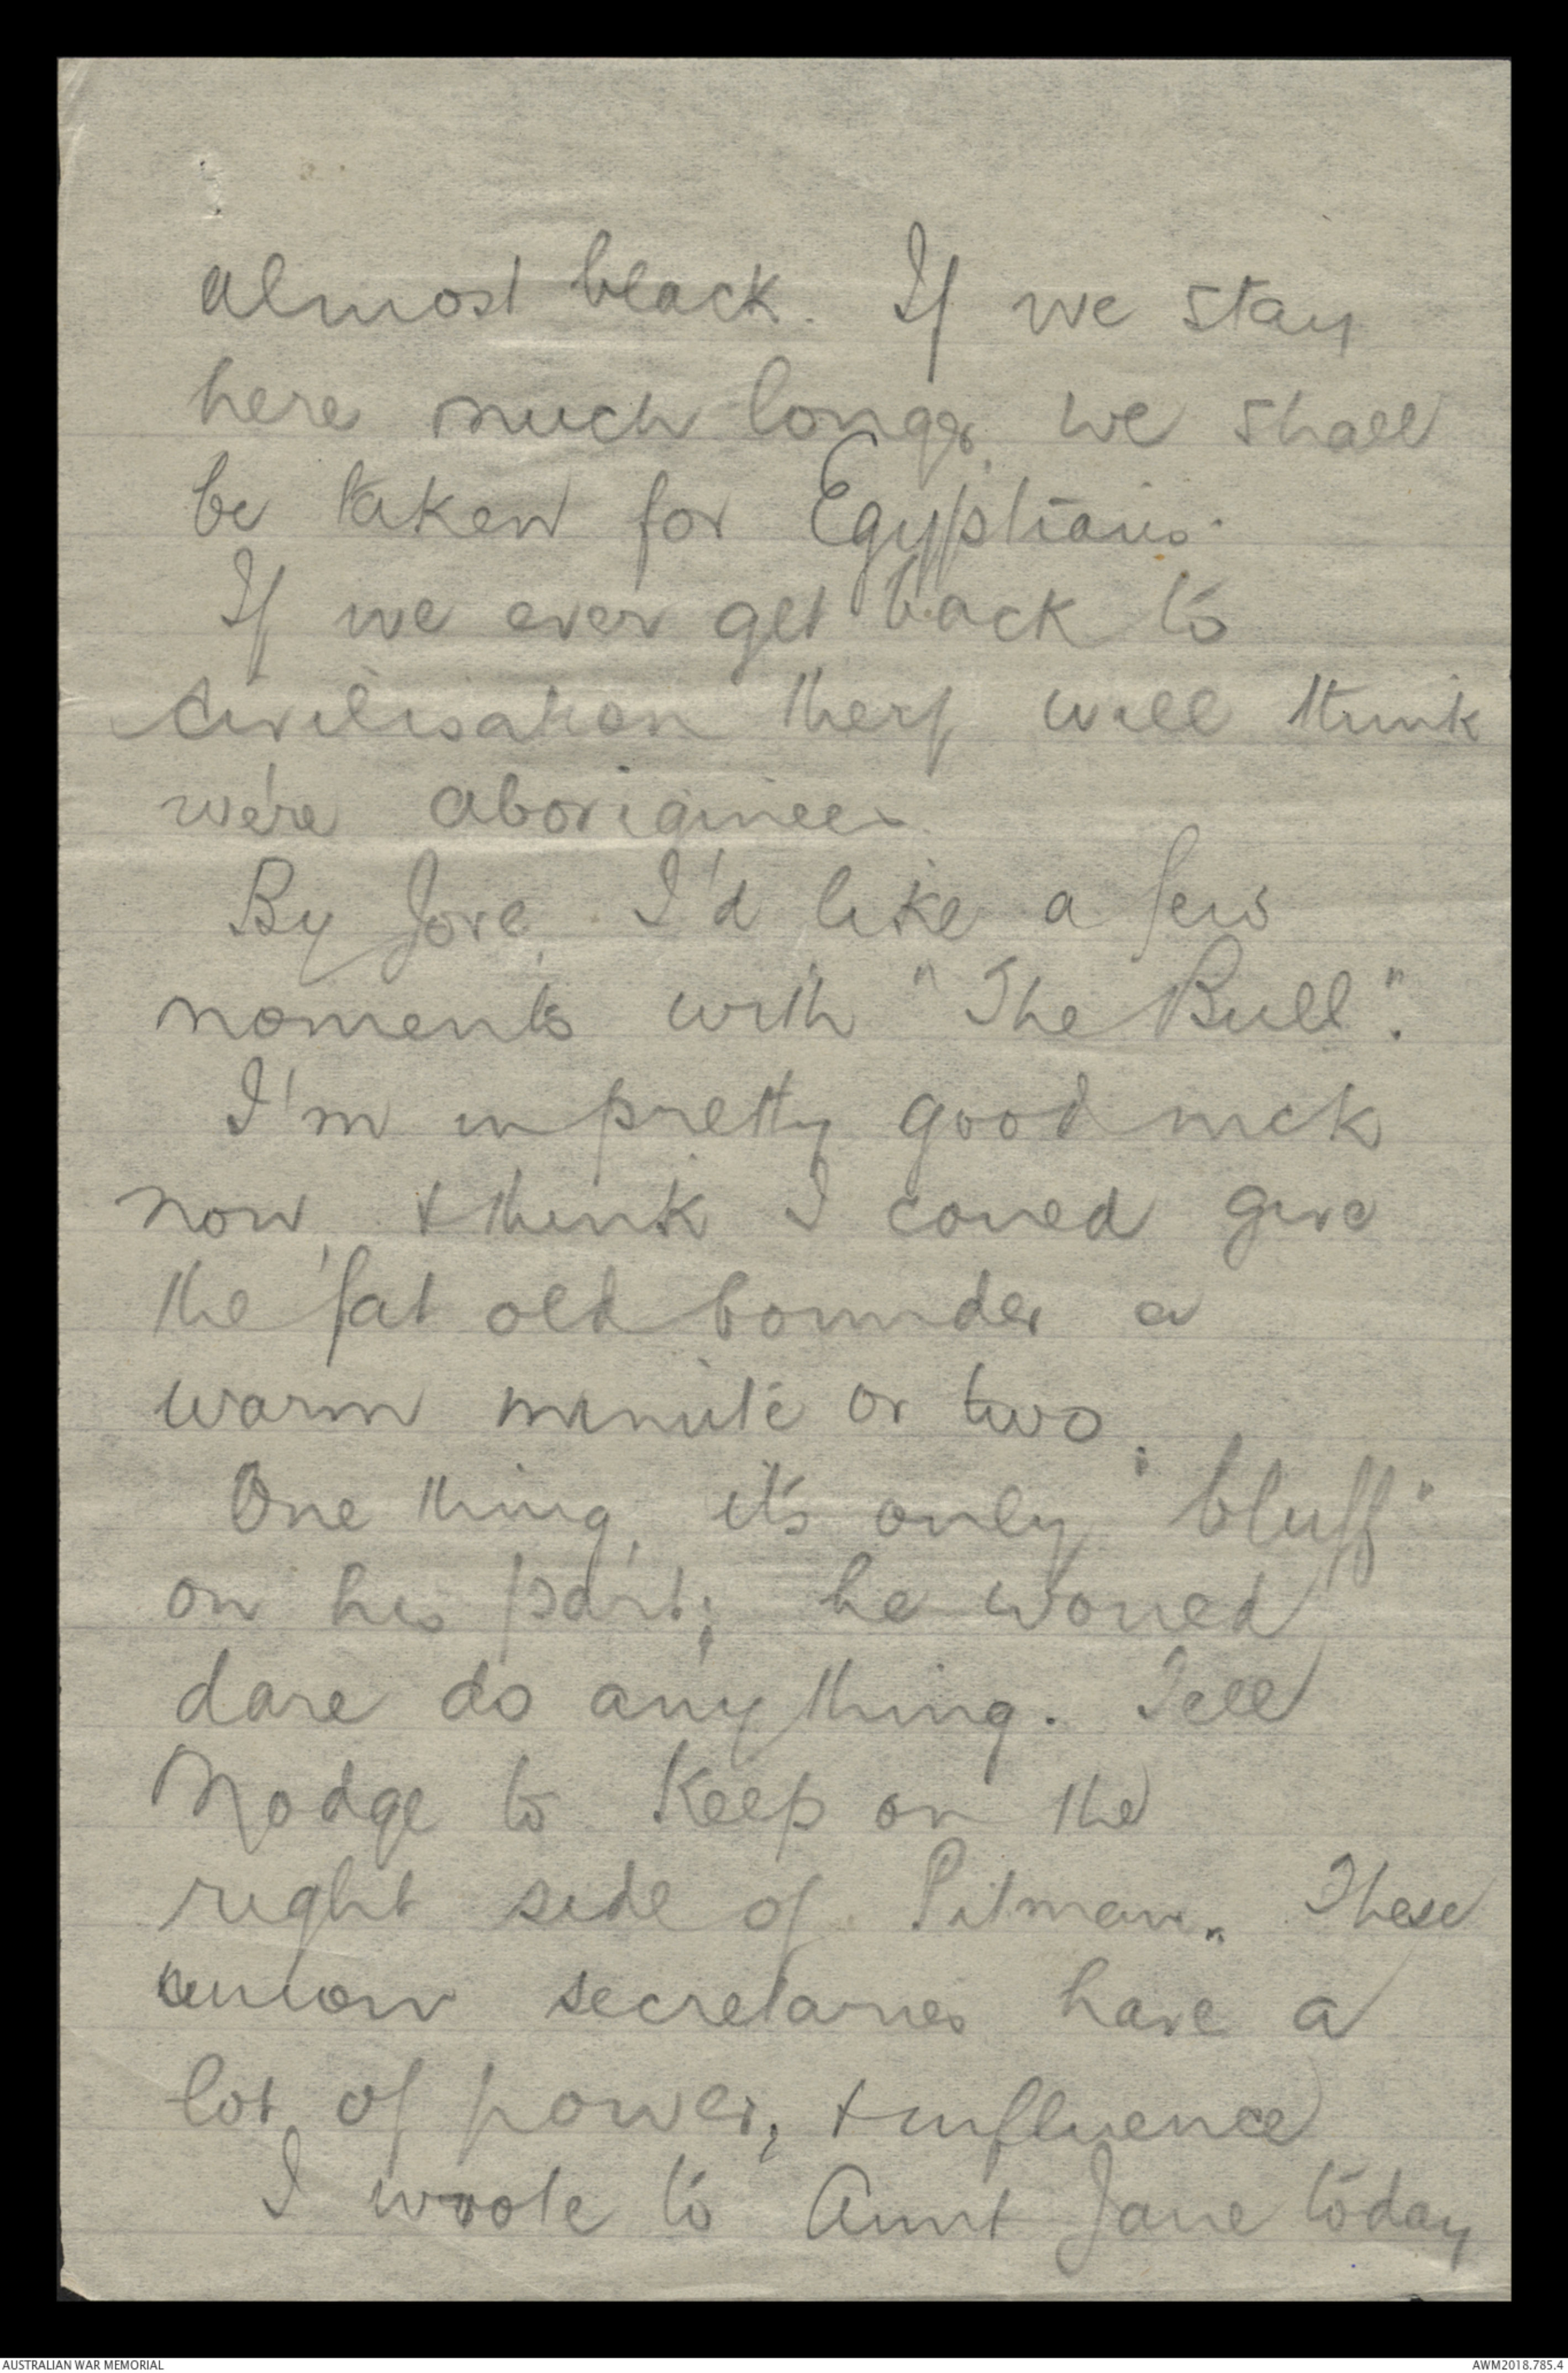 almost black. If we stay
here much longer, we shall
be taken for Egyptians.
If we ever get back to
civilisation they will think
we're aboriginees.
By Jove, I'd like a few
moments with "The Bull".
I'm in pretty good nick
now, & think I could give
the fat old bounder a
warm minute or two.
One thing, it's only "bluff"
on his part; he would
dare do anything. Tell
Madge to keep on the
right side of Pitman. These
union secretaries have a
lot of power, & influence
I wrote to Aunt Jane today
AUSTRALIAN WAR MEMORIAL
AWM2018.785.4